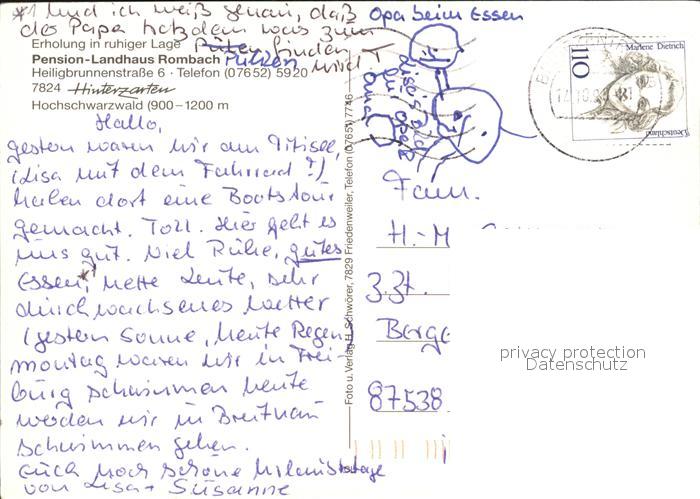 *1 Und ich weiß genau, daß
der Papa trotzdem was zum
Putzen finden wird
Opa beim Essen
Erholung in ruhiger Lage
Pension-Landhaus Rombach
Heiligbrunnenstraße 6 · Telefon (07652) 5920
7824 Hinterzarten
Hochschwarzwald (900–1200 m
Hallo,
gestern waren wir am Titisee
(Lisa mit dem Fahrrad ?!)
haben dort eine Bootstour
gemacht. Toll. Hier geht es
uns gut. Viel Ruhe, gutes
Essen, nette Leute, sehr
durchwachsenes Wetter
(gestern Sonne, heute Regen)
montag waren wir in Frei-
burg schwimmen heute
werden wir in Breitnau
schwimmen gehen.
Euch noch schöne Urlaubstage
von Lisa + Susanne
Foto u. Verlag H. Schwörer, 7829 Friedenweiler, Telefon (07651) 7746
Lisa's Bild
Opa
Marlene Dietrich
110
Deutschland
Fam.
H.-M
Berge
87538
privacy protection
Datenschutz